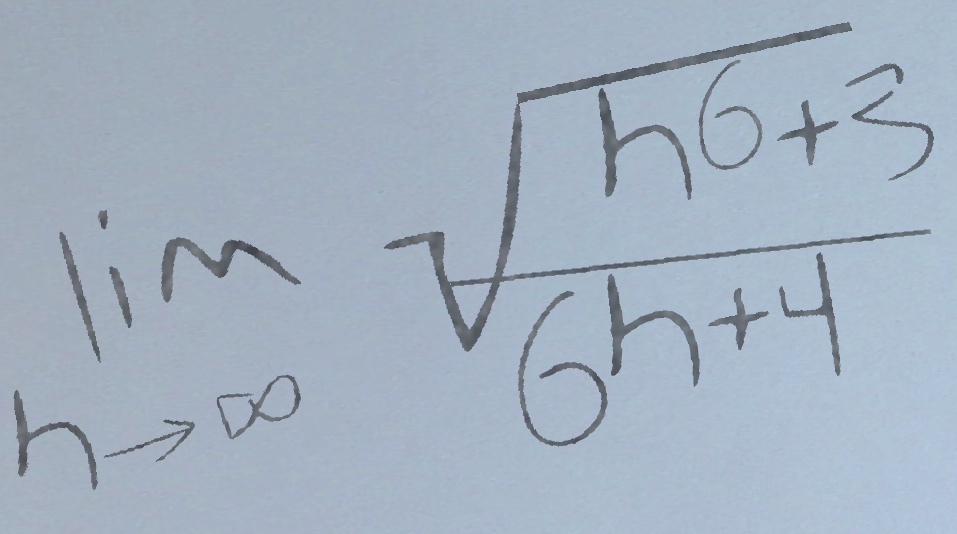 lim √h6+3
6h+4
h→∞